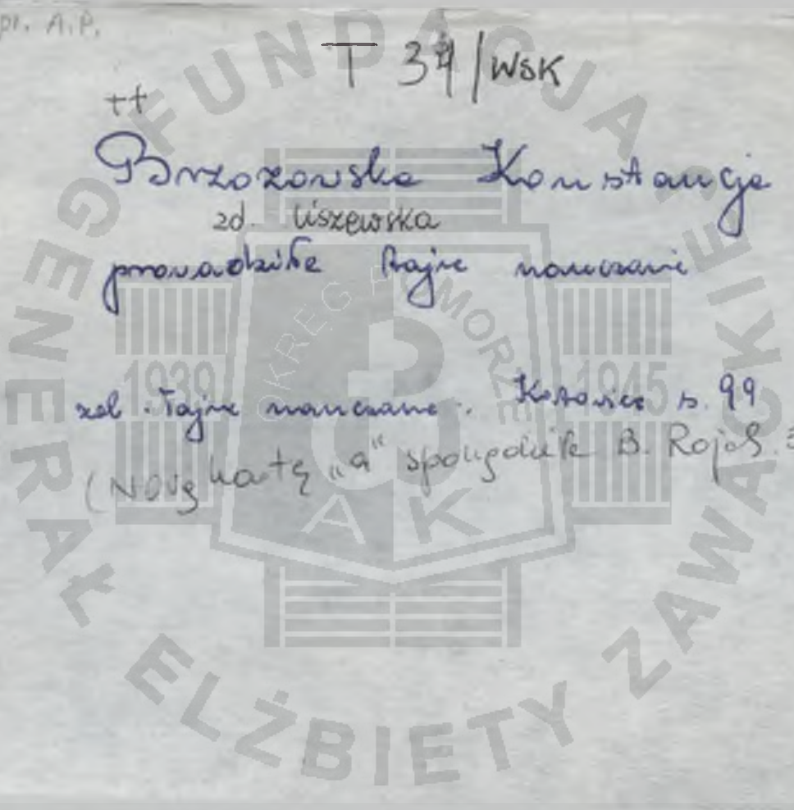 pr. A.P.
T 34/WSK
++
Brzozowska Konstancja
zd. Liszewska
prowadziła tajne nauczanie
zob. Tajne nauczanie.. Katowice s. 99
(Nową kartę "a" sporządziła B. Rojek.
FUNDACJA
GENERAŁ ELŻBIETY ZAWACKIEJ
OKRĘG AK POMORZE
1939 1945
AK